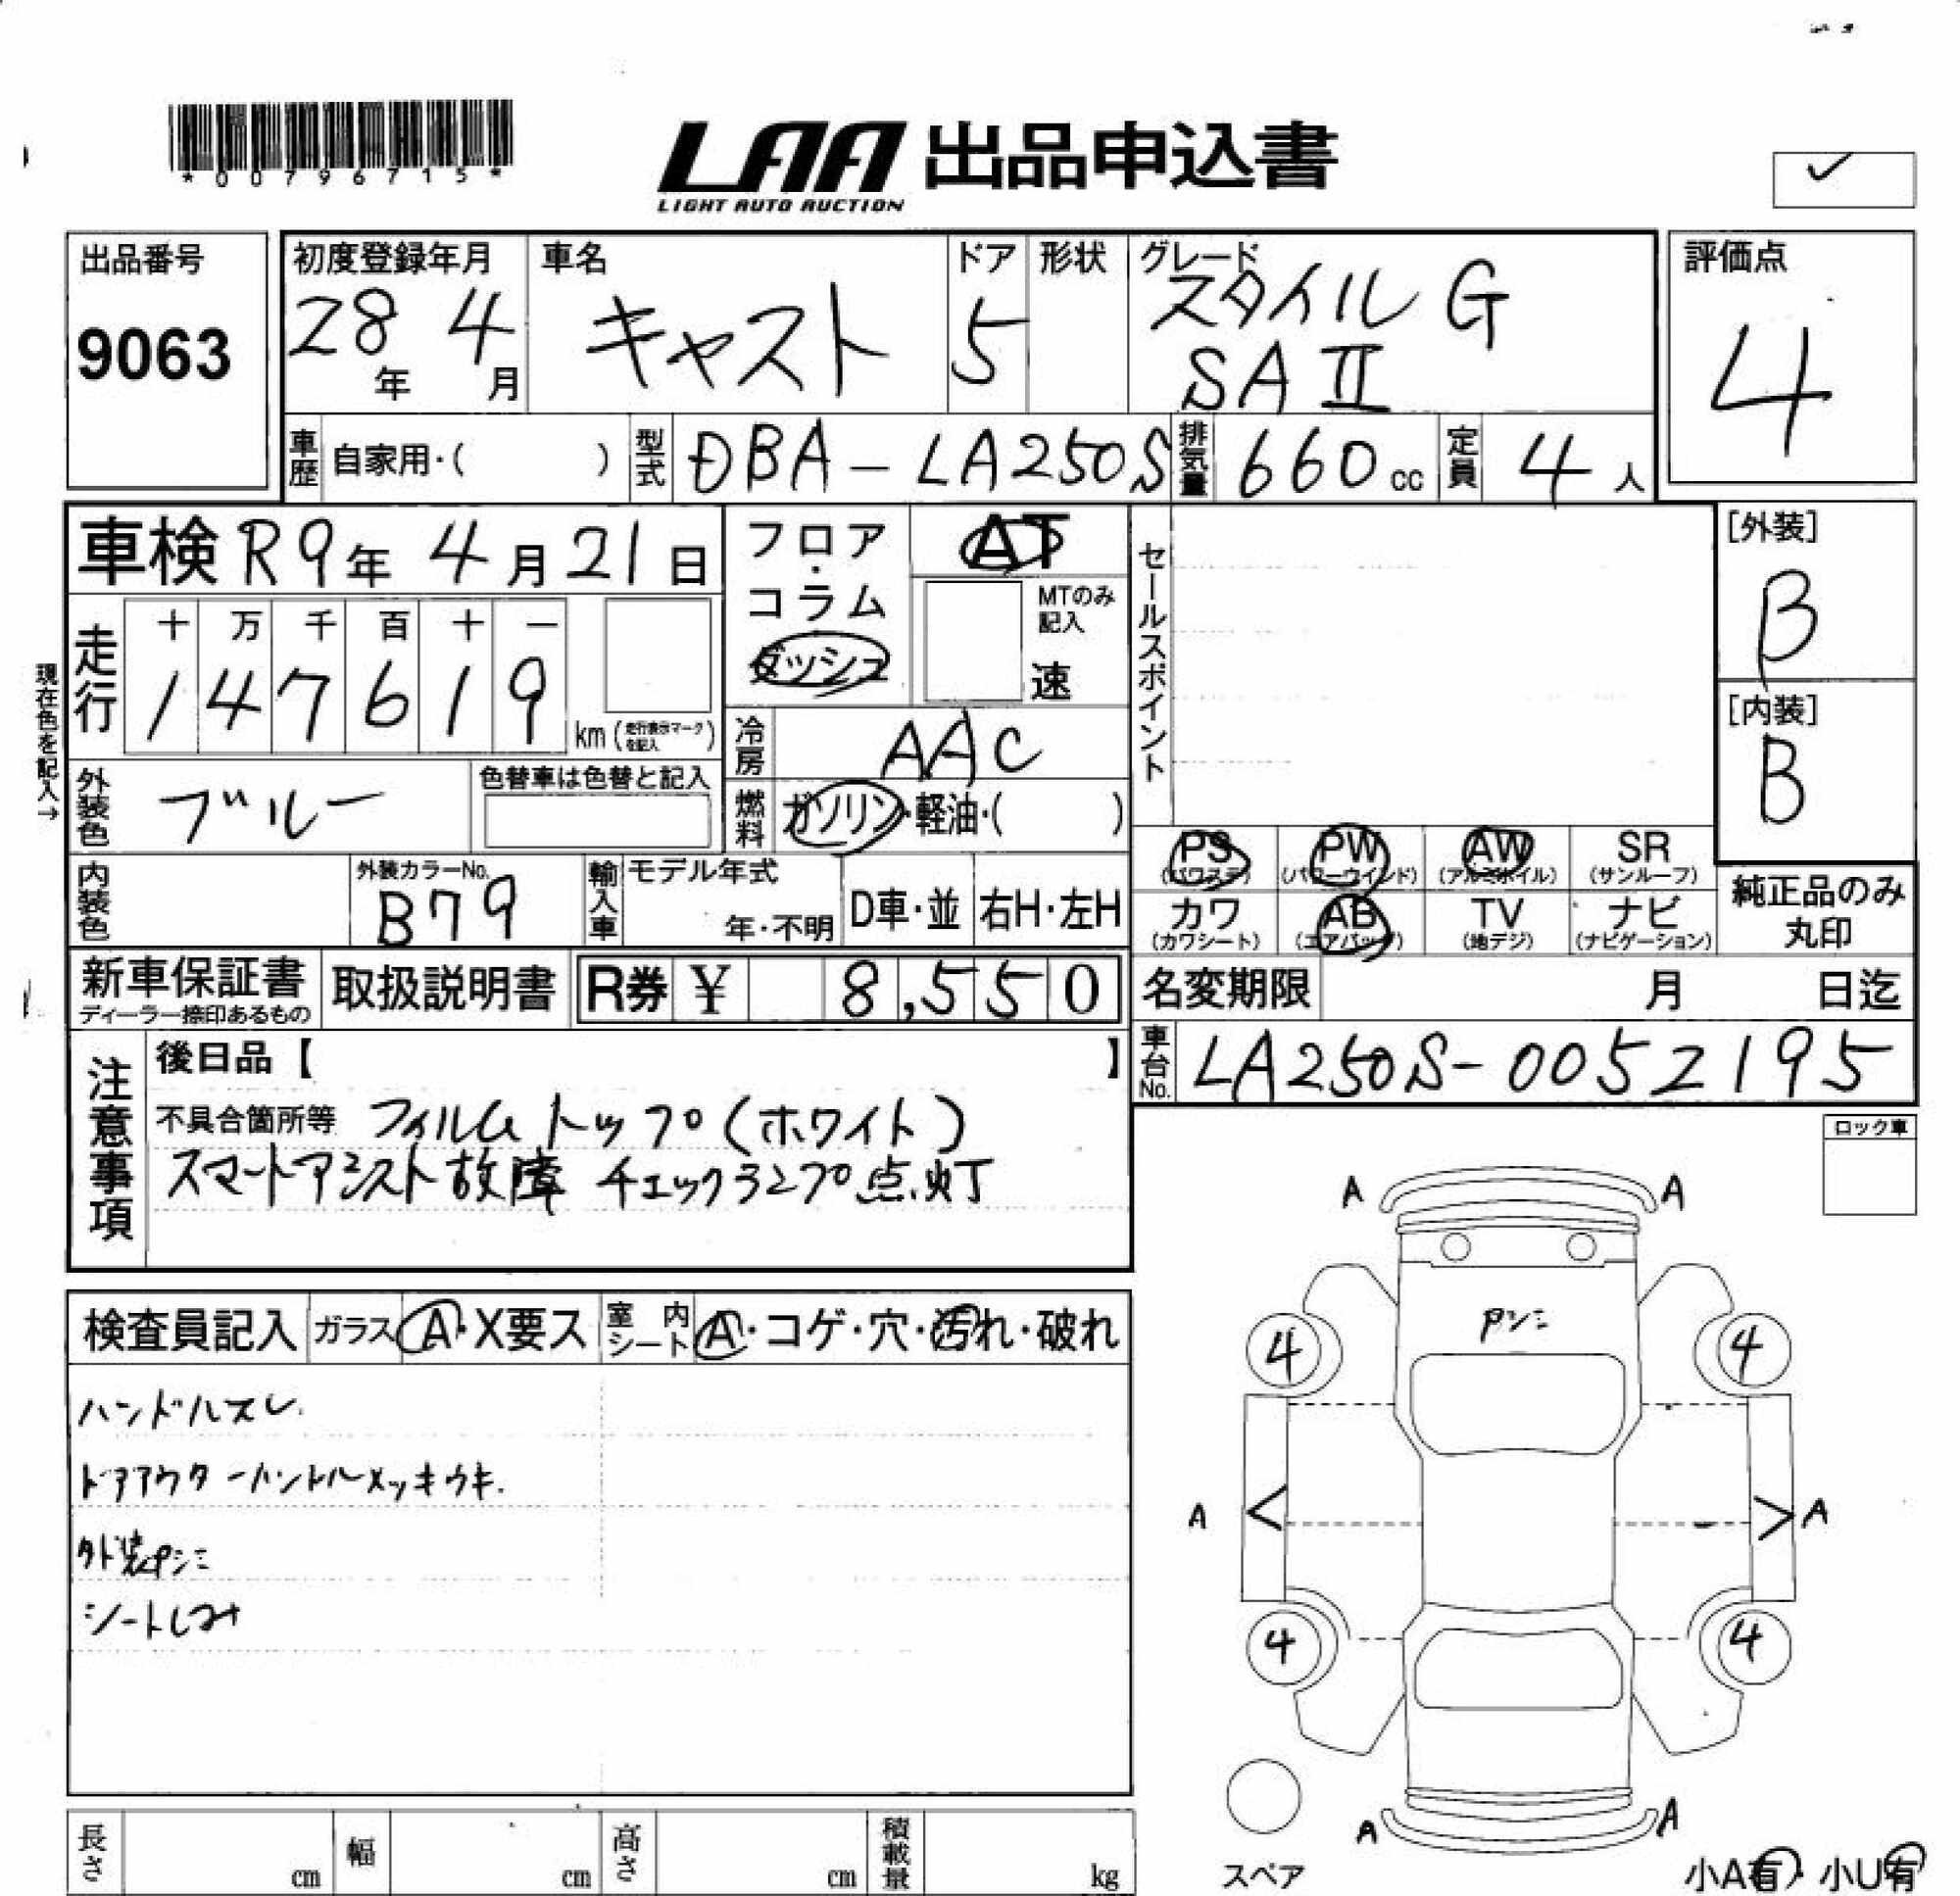 *00796715*
LAA 出品申込書
LIGHT AUTO AUCTION
✓
出品番号
9063
初度登録年月
28年 4月
車名
キャスト
ドア
5
形状
グレード
スタイル G
SA II
評価点
4
車歴 自家用・( )
型式 DBA-LA250S
排気量 660cc
定員 4人
車検 R9年 4月 21日
フロア・コラム
ダッシュ
AT
MTのみ記入
速
セールスポイント
[外装]
B
[内装]
B
現在色を記入→
走行
十 万 千 百 十 一
1 4 7 6 1 9
km(走行表示マークを記入)
冷房 AAC
外装色 ブルー
色替車は色替と記入
燃料 ガソリン・軽油・( )
内装色
外装カラーNo.
B79
輸入車
モデル年式
年・不明
D車・並
右H・左H
PS
(パワステ)
PW
(パワーウインド)
AW
(アルミホイル)
SR
(サンルーフ)
カワ
(カワシート)
AB
(エアバッグ)
TV
(地デジ)
ナビ
(ナビゲーション)
純正品のみ
丸印
新車保証書
ディーラー捺印あるもの
取扱説明書
R券 ¥ 8,550
名変期限 月 日迄
車台No. LA250S-0052195
注意事項
後日品【 】
不具合箇所等 フィルムトップ(ホワイト)
スマートアシスト故障 チェックランプ点灯
ロック車
検査員記入
ガラス A・X要ス
室内シート A・コゲ・穴・汚れ・破れ
ハンドルスレ
ドアアウターハンドルメッキウキ.
外装Pシミ
シートしみ
A A
Pシミ
4 4
A < > A
4 4
A A
スペア
小A有・小U有
長さ cm
幅 cm
高さ cm
積載量 kg